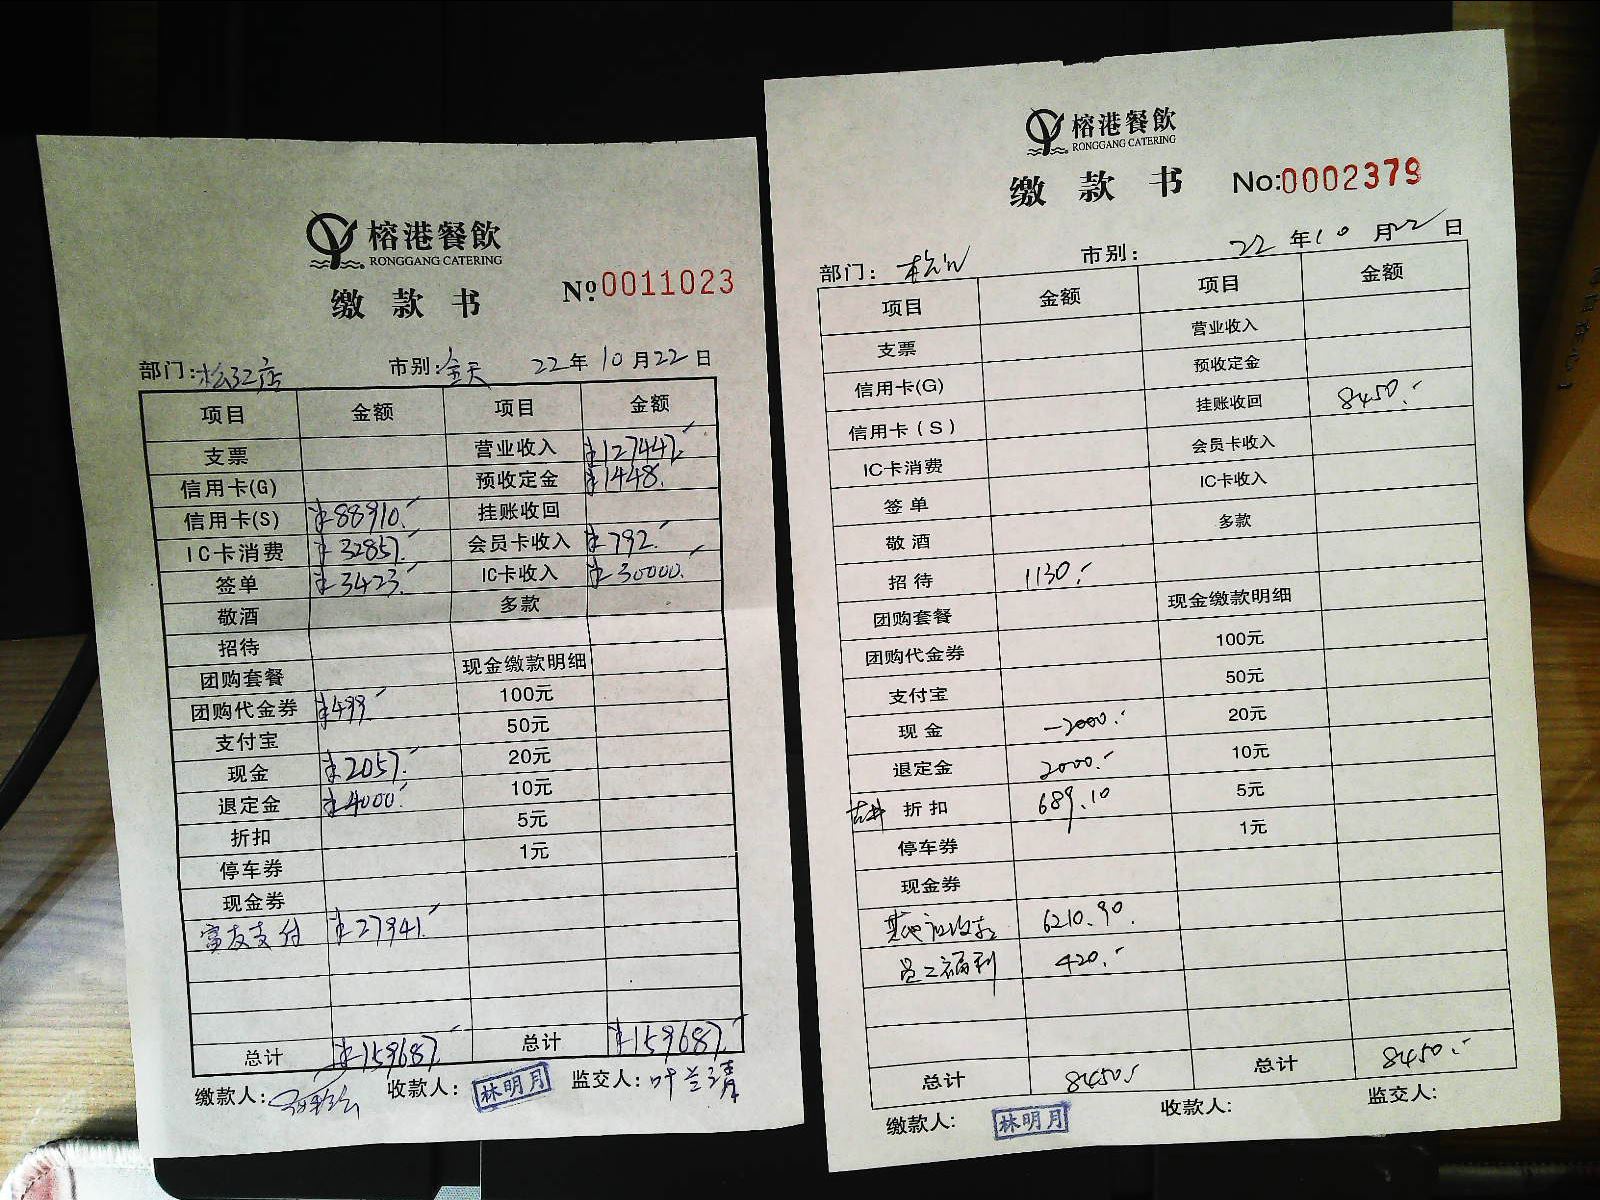 榕港餐飲
RONGGANG CATERING
缴款书 №0011023
部门:松江店 市别:全天 22年10月22日
项目 金额 项目 金额
支票 营业收入 ¥127447.-
信用卡(G) 预收定金 ¥1448.
信用卡(S) ¥88910.- 挂账收回
IC卡消费 ¥32857.- 会员卡收入 ¥792.-
签单 ¥3423.- IC卡收入 ¥30000.-
敬酒 多款
招待
团购套餐 现金缴款明细
团购代金券 ¥499.- 100元
支付宝 50元
现金 ¥2057.- 20元
退定金 ¥4000.- 10元
折扣 5元
停车券 1元
现金券
富友支付 ¥27941.-
总计 ¥159687.- 总计 ¥159687.-
缴款人: 收款人: 林明月 监交人: 叶兰清
榕港餐飲
RONGGANG CATERING
缴款书 No:0002379
部门: 松江 市别: 22年10月22日
项目 金额 项目 金额
支票 营业收入
信用卡(G) 预收定金
信用卡(S) 挂账收回 8450.-
IC卡消费 会员卡收入
签单 IC卡收入
敬酒 多款
招待 1130.-
团购套餐 现金缴款明细
团购代金券 100元
支付宝 50元
现金 -2000.- 20元
退定金 2000.- 10元
折扣 689.10 5元
停车券 1元
现金券
其他应收款 6210.90.
员工福利 420.-
总计 8450.- 总计 8450.-
缴款人: 林明月 收款人: 监交人: